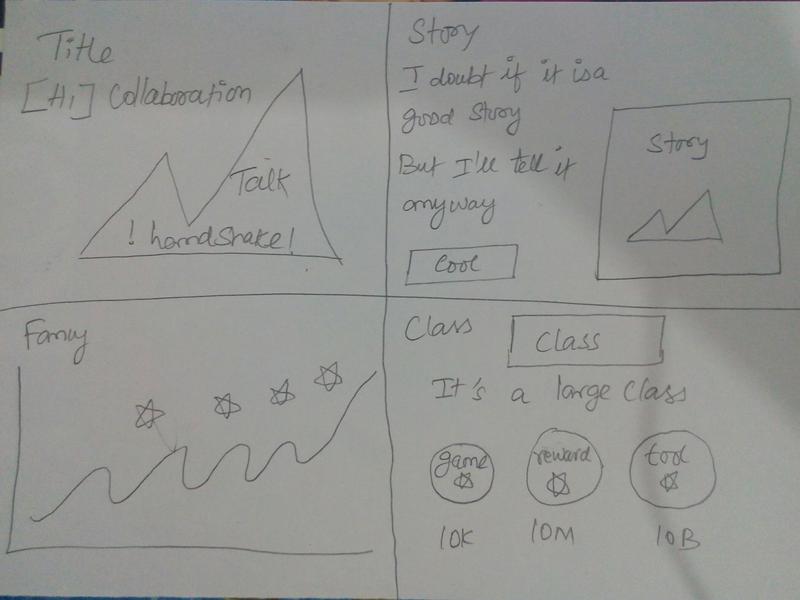 Title
[Hi] Collaboration
Talk
! handshake!
Story
I doubt if it is a
good story
But I'll tell it
anyway
Cool
Story
Fancy
Class
Class
It's a large class
game
reward
tool
10K
10M
10B